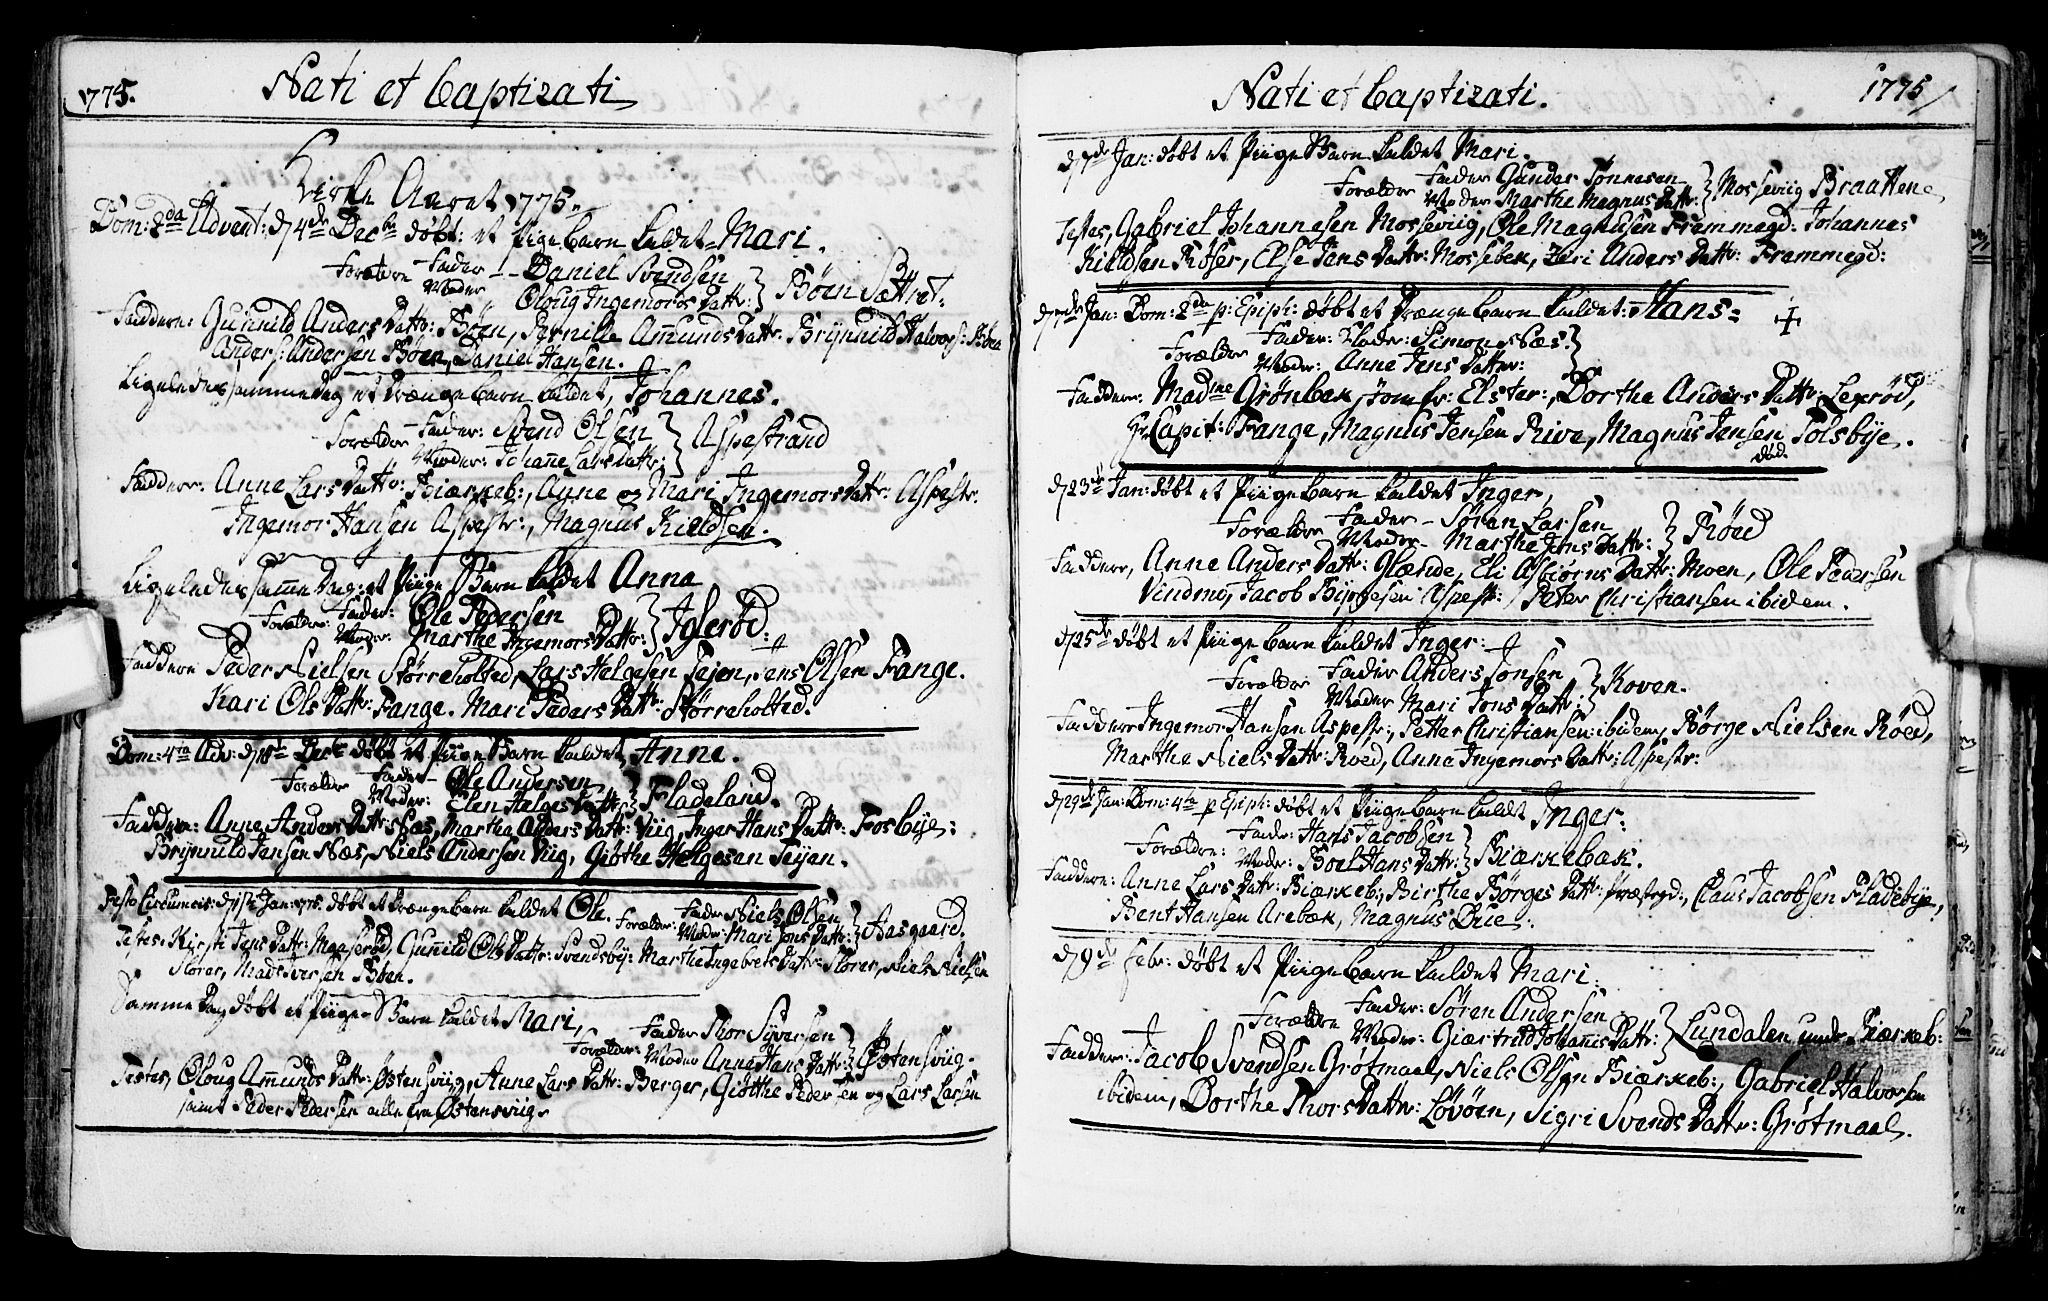 1775. Nati et Baptizati
Kirke Aaret 1775.
Dom: 2da Advent: d 4de Decbr døbt: et Pige barn kaldet Mari.
Forældre Fader - Daniel Svendsen
Moder Oloug Ingemors Dattr: } Bøen Sættret:
Faddere: Gunnild Anders Dattr: Bøen, Pernille Amunds Dattr: Brynnild Halvors:
Anders: Andersen Bøen, Daniel Hansen.
Ligeledes samme dag et Drænge barn kaldet, Johannes.
Forældre Fader: Svend Olsen
Moder: Johanne Lars Dattr: } Aspestrand
Faddere. Anne Lars Dattr: Biærkeb:, Anne og Mari Ingemors Dattr: Aspestr:
Ingemor Hansen Aspestr:, Magnus Kieldsen.
Ligeledes samme Dag: et Piige Barn kaldet Anna
Forældre: Fader: Ole Pedersen
Moder: Marthe Ingemors Dattr: } Igserød:
Faddere Peder Nielsen Størreholted, Lars Helgesen Sejen, Jens Olsen Fange.
Kari Ols Dattr: Fange. Mari Peders Dattr: Størreholted.
Dom: 4ta Adv: d 18de Decbr døbt et Piige Barn kaldet Anne.
Forældre Fader - Ole Andersen
Moder: Elen Helges Dattr: } Fladeland.
Faddere: Anne Anders Dattr: Næs, Martha Anders Dattr: Viig, Inger Hans Dattr: Fosbye:
Brynnild Jensen Næs, Niels Andersen Viig, Giøthe Helgesen Seijen.
Festo Circumcis: d 1ste Jan: 1775. døbt et Drænge barn kaldet Ole. Forældre: Fader Niels Olsen
Moder: Mari Jons Dattr: } Aasgaard.
Testes, Kirsti Jens Dattr: Maaserød, Gunnild Ols Dattr: Svendsby: Marthe Ingebrets Dattr: Storer, Niels Nielsen
Storer, Mads Iversen Bøen.
Samme Dag døbt et Piige-Barn kaldet Mari,
Forældre: Fader Thor Syversen
Moder Anne Hans Dattr: } Østensviig.
Testes, Oloug Amunds Dattr: Østensviig, Anne Lars Dattr: Berger, Giøthe Pedersen og Lars Larsen
samt Peder Pedersen alle fra Østensviig.
Nati et Baptizati. 1775
d 7de Jan: døbt et Piige Barn kaldet Mari.
Forældre Fader Gunder Tønnesen
Moder Marthe Magnus Dattr: } Mosseviig Braattene
Testes, Gabriel Johannesen Mosseviig, Ole Magnusen Frammegd: Johannes
Kieldsen Røser, Else Jens Dattr: Mossebek, Zeri Anders Dattr: Frammegd:
d Jan: Dom: 2da p: Epiph: døbt et Drænge barn kaldet: Hans =
Forældre Fader: Simon Næs.
Moder: Anne Jens Datter: }
Faddere: Madme Grønbek, Jomfr: Elster:, Dorthe Anders Dattr: Lexrød,
Hr Capit: Fange, Magnus Jensen Rive, Magnus Jensen Tolsbye.
død.
d 23de Jan: døbt et Piige barn kaldet Inger,
Forældre Fader - Søren Larsen
Moder - Marthe Jens Dattr: } Røed
Faddere, Anne Anders Dattr: Glænde, Eli Asbiørns Dattr: Moen, Ole Iversen
Vindmo, Jacob Byrgesen Aspestr: Peter Christiansen ibidem.
d 25de døbt et Piige barn kaldet Inger:
Forældre Fader Anders Jonsen
Moder Mari Jons Dattr: } Koven.
Faddere Ingemor Hansen Aspestr:, Petter Christiansen: ibidem, Børge Nielsen Røed,
Marthe Niels Dattr: Roed, Anna Ingemors Dattr: Aspestr:
d 29de Jan: Dom: 4ta p Epiph: døbt et Piige barn kaldt Inger:
Forældre: Fader: Hans Jacobsen
Moder: Boel Hans Dattr: } Biærkebæk.
Faddere: Anne Lars Dattr: Biærkeb:, Birthe Børges Dattr: Præstegd:, Claus Jacobsen Fladebye,
Bent Hansen Arebæk, Magnus Due.
d 9de Febr: døbt et Piige barn kaldet Mari:
Forældre Fader: Søren Andersen
Moder: Giærtrud Johannis Dattr: } Lundalen under Biærkeb:
Faddere: Jacob Svendsen Grøtmaal, Niels Olsen Biærkeb:, Gabriel Halvorsen
ibidem, Dorthe Thors Dattr: Løvøen, Sigri Svends Dattr: Grøtmaal.